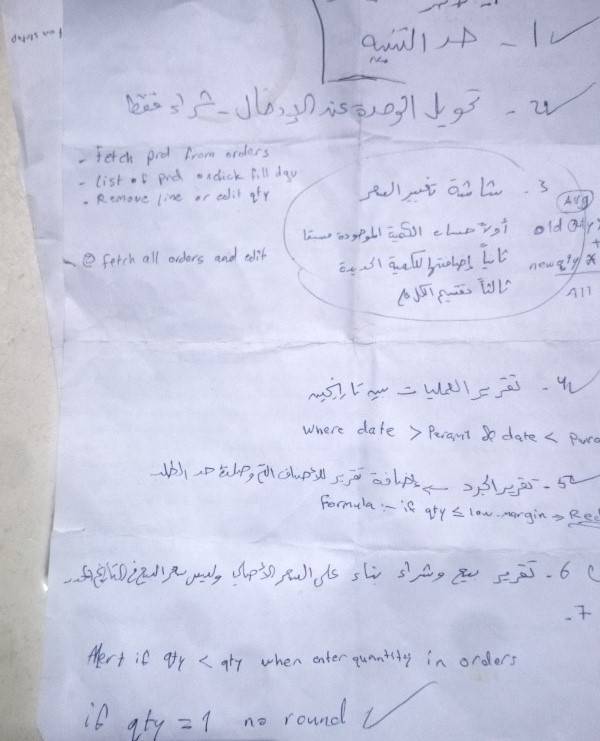 1 - حد التنبيه
2 - تحويل الوحدة عند الإدخال - شراء فقط
- Fetch prd from orders
- List of prd onclick fill dgv
- Remove line or edit qty
@ fetch all orders and edit
3 - شاشة تغيير السعر
أولاً حساب الكمية الموجودة مسبقا
ثانياً إضافتها للكمية الجديدة
ثالثاً تقسيم الكل
Avg
old Qty
+
new qty *
All
4 - تقرير العمليات بين تاريخين
where date > Param1 & date < Para
5 - تقرير الجرد إضافة تقرير للأصناف التي وصلت حد الطلب
Formula :- if qty ≤ low-margin → Red
6 - تقرير بيع وشراء بناء على السعر الأصلي وليس سعر البيع في التاريخ
7 -
Alert if qty < qty when enter quantity in orders
if qty = 1 no round